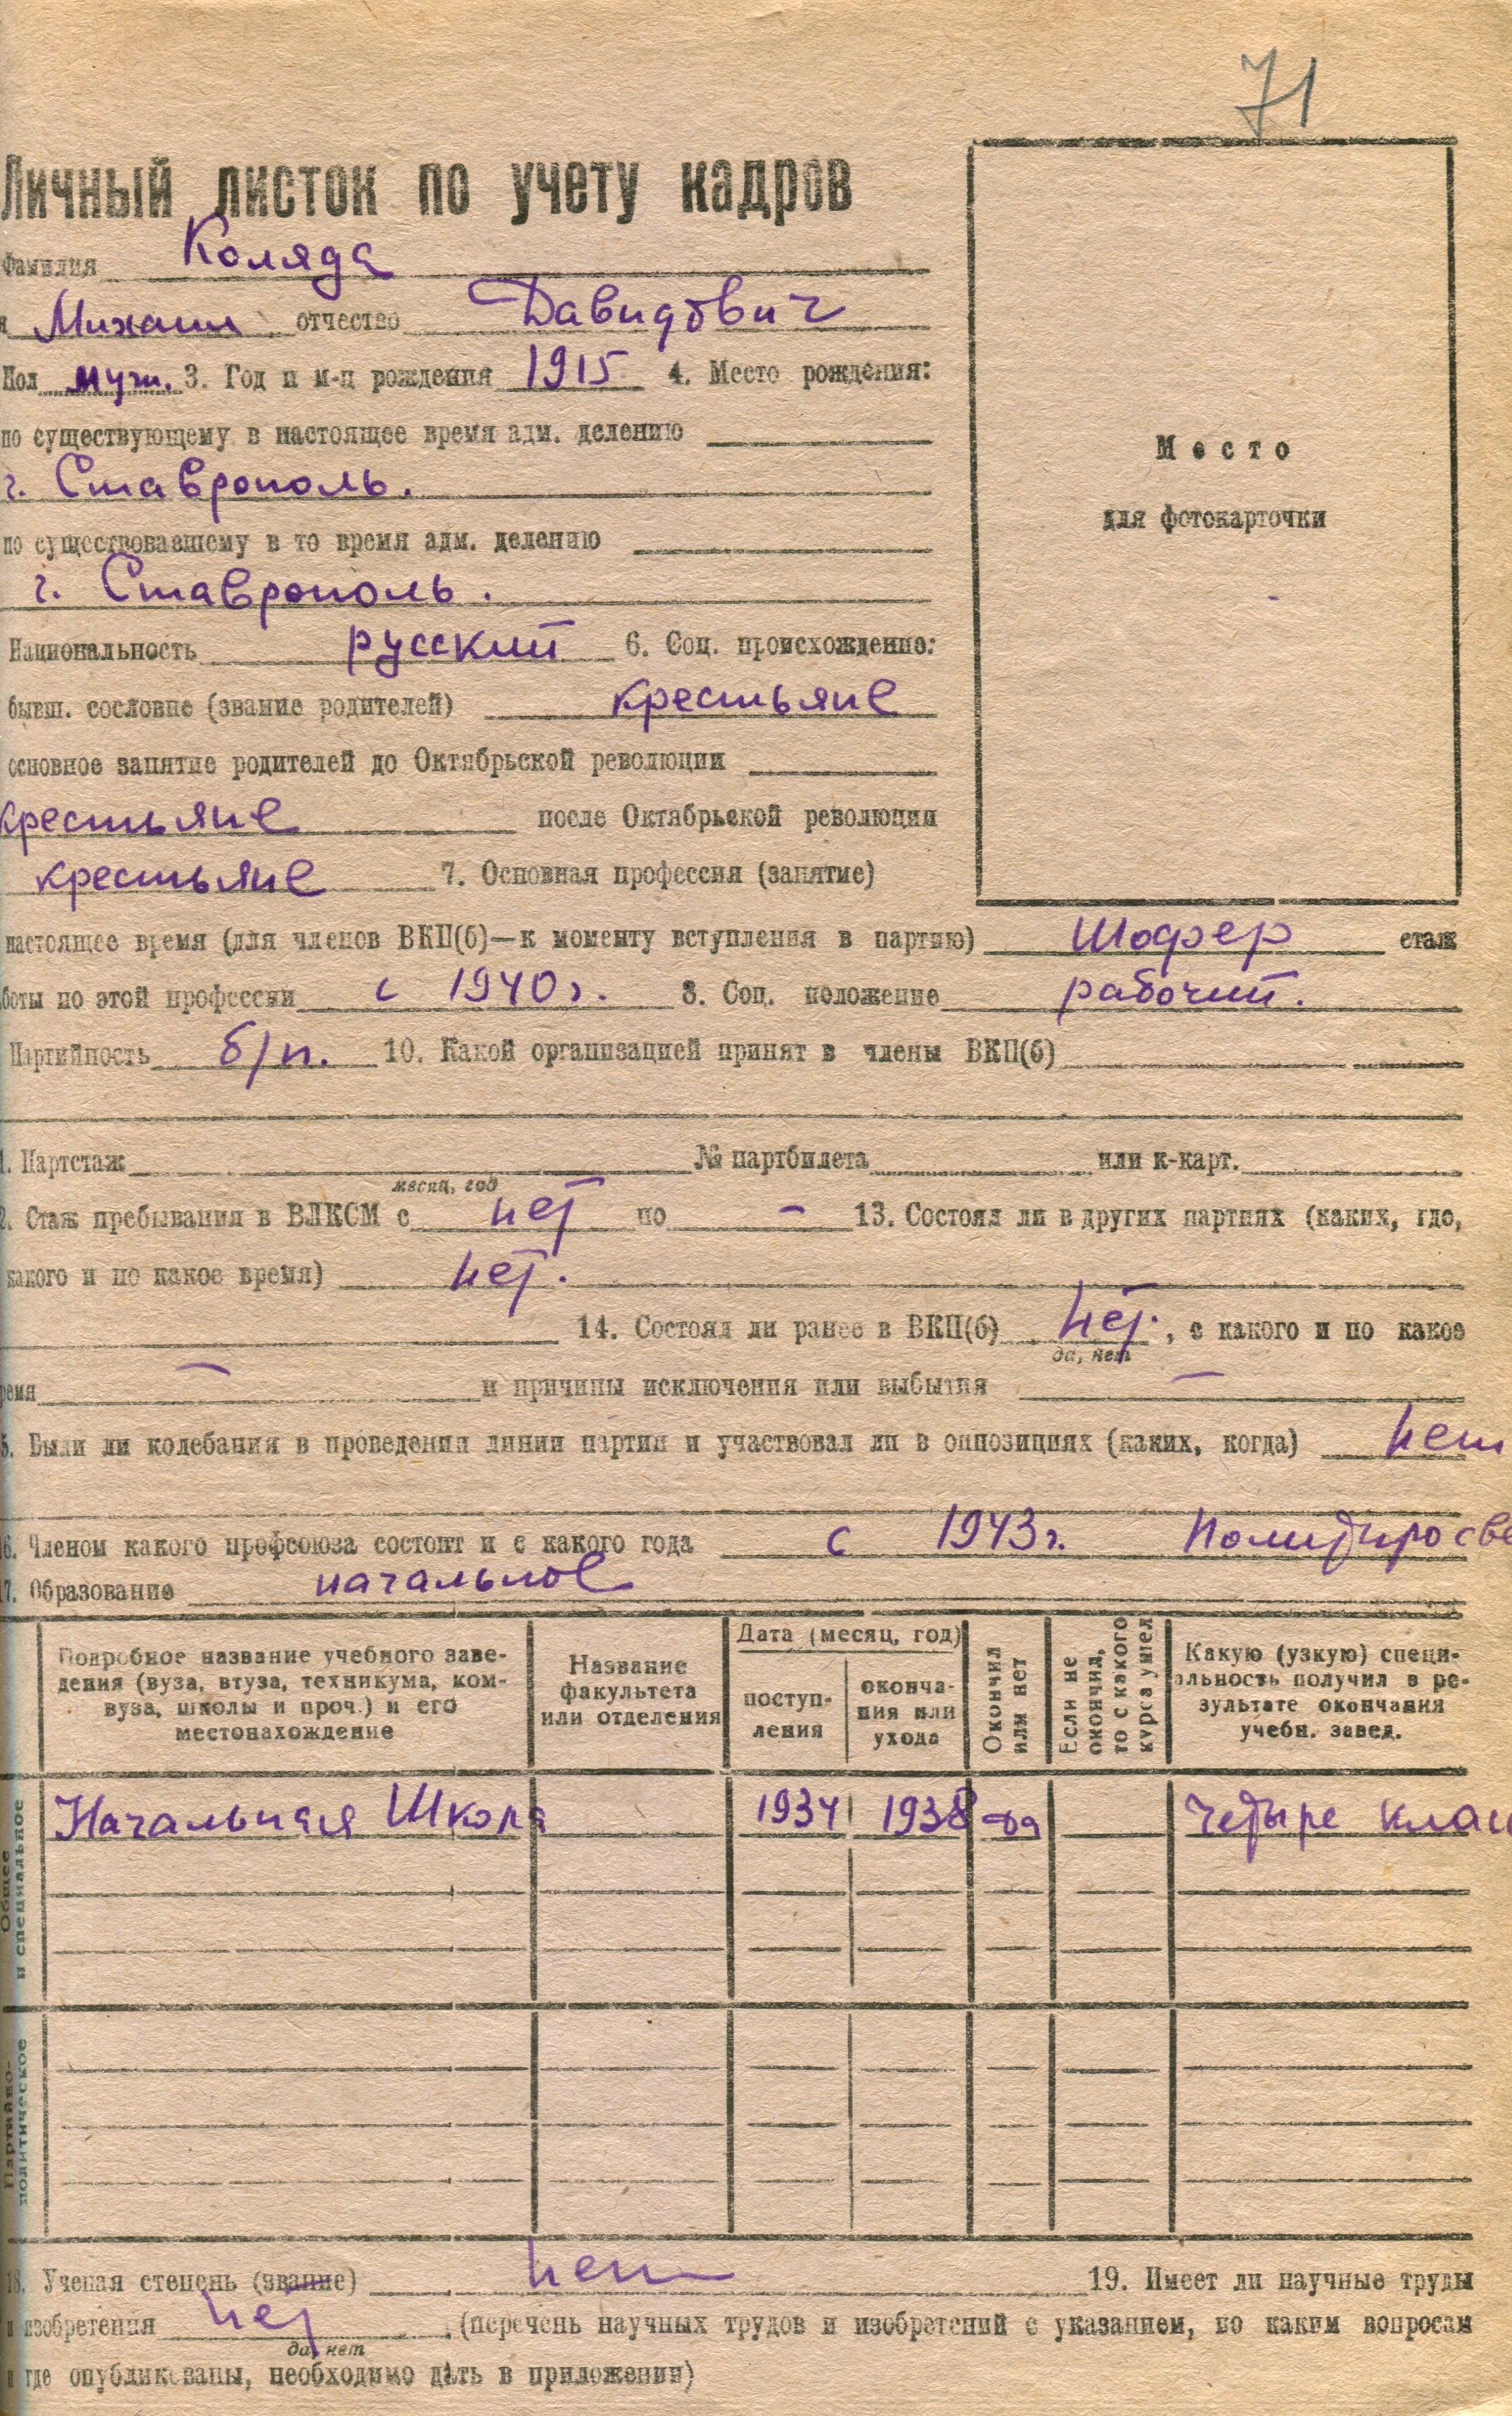 71
Личный листок по учету кадров
Фамилия Коляда
я Михаил отчество Давидович
Пол муж. 3. Год и м-ц рождения 1915 4. Место рождения:
по существующему в настоящее время адм. делению
г. Ставрополь.
по существовавшему в то время адм. делению
г. Ставрополь.
Национальность русский 6. Соц. происхождение:
бывш. сословие (звание родителей) крестьяне
основное занятие родителей до Октябрьской революции
крестьяне после Октябрьской революции
крестьяне 7. Основная профессия (занятие)
Место
для фотокарточки
настоящее время (для членов ВКП(б)—к моменту вступления в партию) Шофер стаж
боты по этой профессии с 1940 г. 8. Соц. положение рабочий.
Партийность б/п. 10. Какой организацией принят в члены ВКП(б)
1. Партстаж № партбилета или к-карт.
месяц, год
2. Стаж пребывания в ВЛКСМ с нет по – 13. Состоял ли в других партиях (каких, где,
какого и по какое время) нет.
14. Состоял ли ранее в ВКП(б) нет. , с какого и по какое
да, нет
ремя – и причины исключения или выбытия –
5. Были ли колебания в проведении линии партии и участвовал ли в оппозициях (каких, когда) нет
6. Членом какого профсоюза состоит и с какого года с 1943 г. Политпросве
7. Образование начальное
Общее и специальное
Подробное название учебного заве-
дения (вуза, втуза, техникума, ком-
вуза, школы и проч.) и его
местонахождение
Название
факультета
или отделения
Дата (месяц, год)
поступ-
ления
оконча-
ния или
ухода
Окончил
или нет
Если не
окончил,
то с какого
курса ушел
Какую (узкую) специ-
альность получил в ре-
зультате окончания
учебн. завед.
Начальная Школа 1934 1938 да Четыре клас
Партийно-
политическое
18. Ученая степень (звание) нет 19. Имеет ли научные труды
и изобретения нет (перечень научных трудов и изобретений с указанием, по каким вопросам
да, нет
и где опубликованы, необходимо дать в приложении)